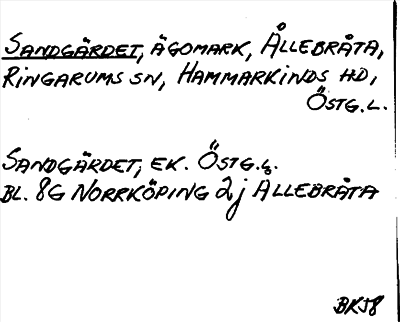 SANDGÄRDET, ÄGOMARK, ÅLLEBRÅTA,
RINGARUMS SN, HAMMARKINDS HD,
ÖSTG.L.
SANDGÄRDET, EK. ÖSTG.L.
BL. 8G NORRKÖPING 2j ÅLLEBRÅTA
BKJ8